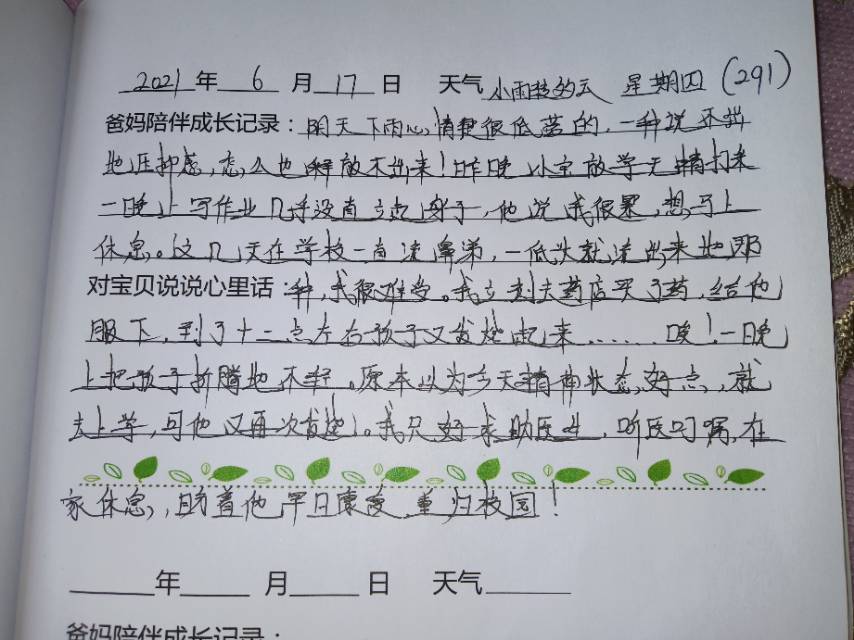 2021 年 6 月 17 日 天气 小雨转多云 星期四 (291)
爸妈陪伴成长记录：阴天下雨心情是很低落的，一种说不出
地压抑感，怎么也释放不出来！昨晚小宝放学无精打采
一晚上写作业几乎没直立起身子，他说我很累，想马上
休息。这几天在学校一直流鼻涕，一低头就流出来地那
对宝贝说说心里话：种，我很难受。我立刻去药店买了药，给他
服下，到了十二点左右孩子又发烧起来……唉！一晚
上把孩子折腾地不轻。原本以为今天精神状态好点，就
去上学，可他又再次发烧。我只好求助医生，听医叮嘱，在
家休息，助着他早日康复，重归校园！
年 月 日 天气
爸妈陪伴成长记录：